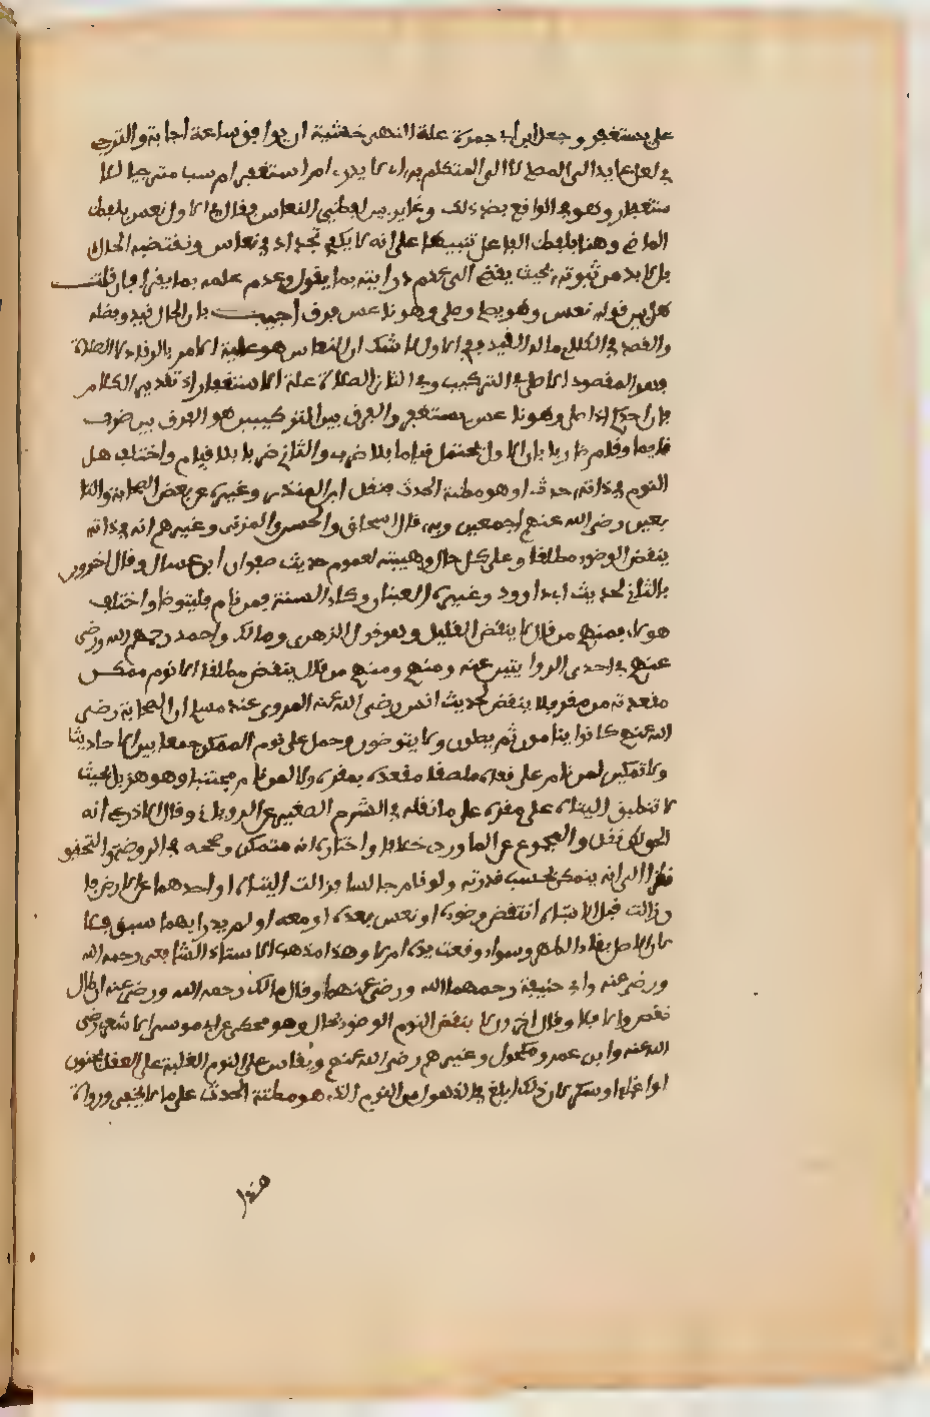 على يستغفر وجعل ابن ابي جمرة علة النهي خشية ان يوافق ساعة اجابة والترجي
في لعل عايد الى المصلي لا الى المتكلم به اي لا يدري امر استغفر ام سب مترجيا للا
ستغفار وهو في الواقع بضد ذلك وغاير بين لفظي النعاس فقال في الاول نعس بلفظ
الماضي وهنا بلفظ الفاعل تنبيها على انه لا يكفي تجدد ادنى نعاس وتقضيه الحال
بل لا بد من ثبوته بحيث يفضي الى عدم درايته بما يقول وعدم علمه بما يقرا فان قلت
هل بين قوله نعس وهو يصلي وصلى وهو ناعس فرق اجيب بان الحال قيد وفضلة
والقصد في الكلام ما له القيد ففي الاول لا شك ان النعاس هو علة الامر بالرقاد لا الصلاة
فهو المقصود الاصلي في التركيب وفي الثاني الصلاة علة الاستغفار اذ تقدير الكلام
فان احدكم اذا صلى وهو ناعس يستغفر والفرق بين التركيبين هو الفرق بين ضرب
قايما وقام ضاربا فان الاول يحتمل قياما بلا ضرب والثاني ضربا بلا قيام واختلف هل
النوم في ذاته حدث او هو مظنة الحدث فنقل ابن المنذر وغيره عن بعض الصحابة والتا
بعين رضي الله عنهم اجمعين وبه قال اسحاق والحسن والمزني وغيرهم انه في ذاته
ينقض الوضوء مطلقا وعلى كل حال وهيئة لعموم حديث صفوان ابن عسال وقال اخرون
بالثاني لحديث ابي داوود وغيره العينان وكاء السنه فمن نام فليتوضا واختلف
هولاء فمنهم من قال لا ينقض القليل وهو قول الزهري ومالك واحمد رحمهم الله ورضي
عنهم في احدى الروايتين عنه ومنهم ومنهم من قال ينقض مطلقا الا نوم ممكن
مقعدته من مقره فلا ينقض لحديث انس رضي الله عنه المروي عند مسلم ان الصحابة رضي
الله عنهم كانوا ينامون ثم يصلون ولا يتوضون وحمل على نوم الممكن جمعا بين الاحاديث
ولا تمكين لمن نام على قفاه ملصقا مقعده بمقره ولا لمن نام محتبيا وهو هزيل بحيث
لا تنطبق الياه على مقره على ما نقله في الشرح الصغير عن الروياني وقال الاذرعي انه
الحق لكن نقل في المجموع عن الماوردي خلافه واختار انه متمكن وصححه في الروضة والتحقيق
نظرا الى انه يتمكن بحسب قدرته ولو نام جالسا فزالت الياه او احدهما عن الارض فا
ن زالت قبل الانتباه انتقض وضوءه او نعس بعده او معه او لم يدر ايهما سبق فلا
لان الاصل بقاء الطهر وسواء وقعت يده ام لا وهذا مذهب الاستاذ الشافعي رحمه الله
ورضي عنه وابي حنيفة رحمهما الله ورضي عنهما وقال مالك رحمه الله ورضي عنه ان طال
نقض والا فلا وقال اخرون لا ينقض النوم الوضوء بحال وهو محكي عن ابي موسى الاشعري رضي
الله عنه وابن عمر ومكحول وغيرهم رضي الله عنهم ويقاس على النوم الغلبة على العقل بجنون
او اغماء او سكر لان ذلك ابلغ في الذهول من النوم الذي هو مظنة الحدث على ما لا يخفى ورواة
هذا